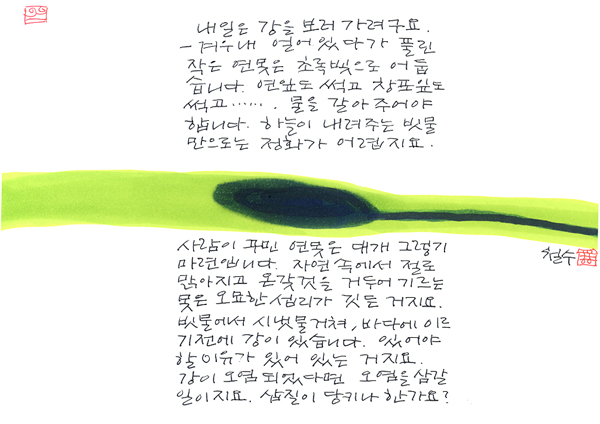 내일은 강을 보러 가려구요.
- 겨우내 얼어있다가 풀린
작은 연못은 초록빛으로 어둡
습니다. 연잎도 썩고 창포잎도
썩고……. 물을 갈아 주어야
합니다. 하늘이 내려주는 빗물
만으로는 정화가 어렵지요.
사람이 꾸민 연못은 대개 그렇기
마련입니다. 자연 속에서 절로
맑아지고 온갖것을 거두어 기르는
못은 오묘한 섭리가 깃든 거지요.
빗물에서 시냇물거쳐, 바다에 이르
기전에 강이 있습니다. 있어야
할 이유가 있어 있는 거지요.
강이 오염되었다면 오염을 삼갈
일이지요. 삽질이 당키나 한가요?
철수